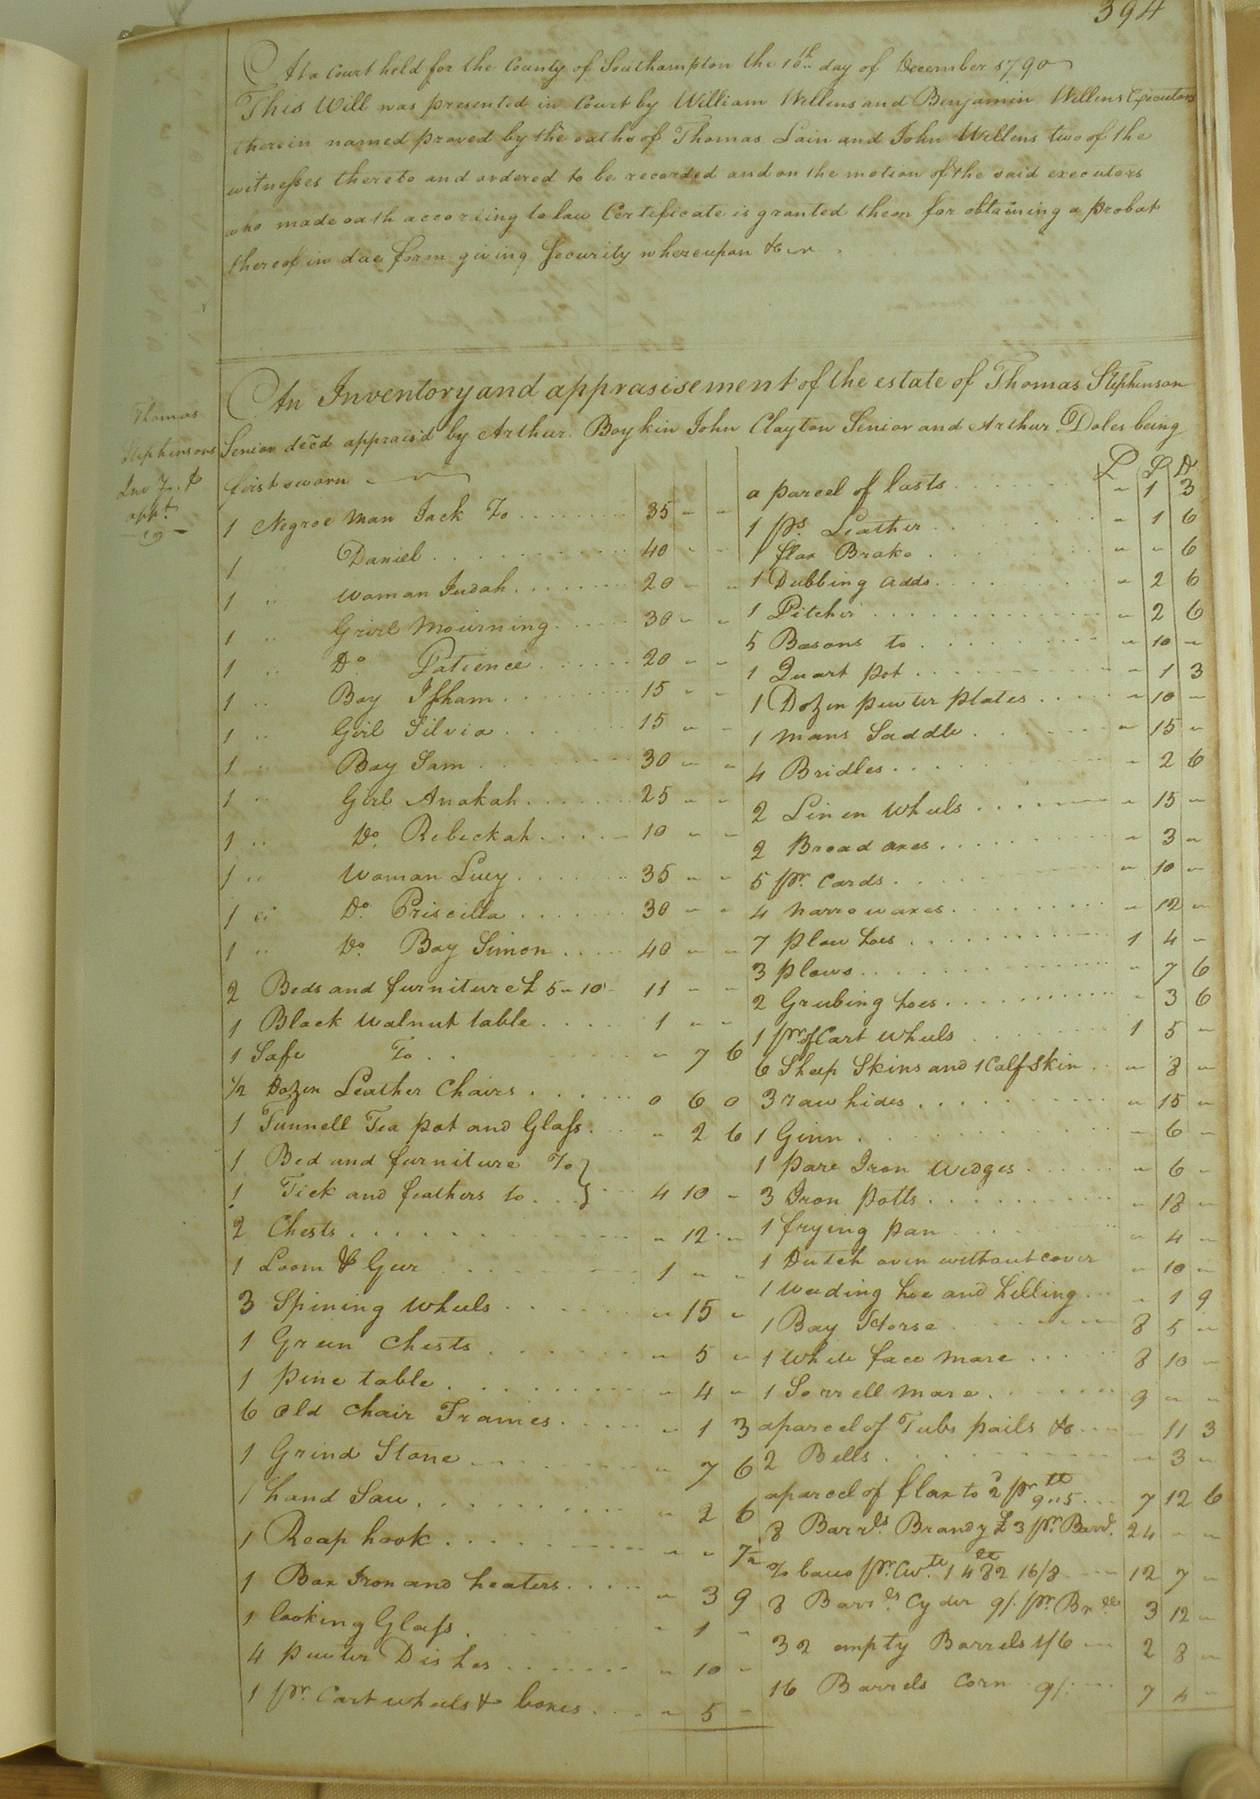 394
At a Court held for the County of Southampton the 16th day of December 1790
This Will was presented in Court by William Wellens and Benjamin Wellens Executors
therein named proved by the oaths of Thomas Lain and John Wellens two of the
witnesses thereto and ordered to be recorded and on the motion of the said executors
who made oath according to law Certificate is granted them for obtaining a probat
thereof in due form giving Security whereupon &c
An Inventory and apprasisement of the estate of Thomas Stephenson
Senior decd apprais'd by Arthur Boykin John Clayton Senior and Arthur Doles being
first sworn
Thomas
Stephensons
appt
1 Negroe Man Jack To 35 " "
1 Daniel 40 " "
1 " Woman Judah 20 " "
1 " Girl Mourning 30 " "
1 " Do Patience 20 " "
1 " Boy Isham 15 " "
1 " Girl Silvia 15 " "
1 " Boy Sam 30 " "
1 " Girl Anakah 25 " "
1 " Do. Rebeckah 10 " "
1 " Woman Lucy 35 " "
1 " Do. Priscilla 30 " "
1 " Do. Boy Simon 40 " "
2 Beds and furniture £ 5 " 10 11 " "
1 Black Walnut table 1 " "
1 Safe To " 7 6
1/2 Dozen Leather Chairs 0 6 0
1 Tunnell Tea pot and Glass " 2 6
1 Bed and furniture To }
1 Tick and feathers to } 4 10 "
2 Chests " 12 "
1 Loom & Geer 1 " "
3 Spining Wheels " 15 "
1 Green Chests " 5 "
1 pine table " 4 "
6 old Chair Frames " 1 3
1 Grind Stone " 7 6
1 hand Saw " 2 6
1 Reap hook " " 7 1/2
1 Box Iron and heaters " 3 9
1 looking Glass " 1 "
4 Pewter Dishes " 10 "
1 pr. Cart wheels & boxes " 5 "
£ S D
a parcel of lasts " 1 3
1 ps. Leather " 1 6
1 flax Brake " " 6
1 Dubbing adds " 2 6
1 Pitcher " 2 6
5 Basons to " 10 "
1 Quart pot " 1 3
1 Dozen pewter plates " 10 "
1 mans Saddle " 15 "
4 Bridles " 2 6
2 Linen Wheels " 15 "
2 Broad axes " 3 "
5 pr. Cards " 10 "
4 narrow axes " 12 "
7 plow hoes 1 4 "
3 plows " 7 6
2 Grubing hoes " 3 6
1 pr of Cart wheels 1 5 "
6 Sheep Skins and 1 Calf Skin " 8 "
3 raw hides " 15 "
1 Ginn " 6 "
1 pare Iron Wedges " 6 "
3 Iron potts " 18 "
1 frying pan " 4 "
1 Dutch oven without cover " 10 "
1 Weeding hoe and hilling " 1 9
1 Bay Horse 8 5 "
1 White face Mare 8 10 "
1 Sorrell Mare 9 " "
a parcel of Tubs pails &c " 11 3
2 Bells " 3 "
a parcel of flax to 7 12 6
8 Barrls. Brandy £ 3 pr. Barrl. 24 " "
16/8 12 7 "
8 Barrls Cyder 9/. pr. Brll 3 12 "
32 empty Barrels 1/6 2 8 "
16 Barrels Corn 9/. 7 4 "